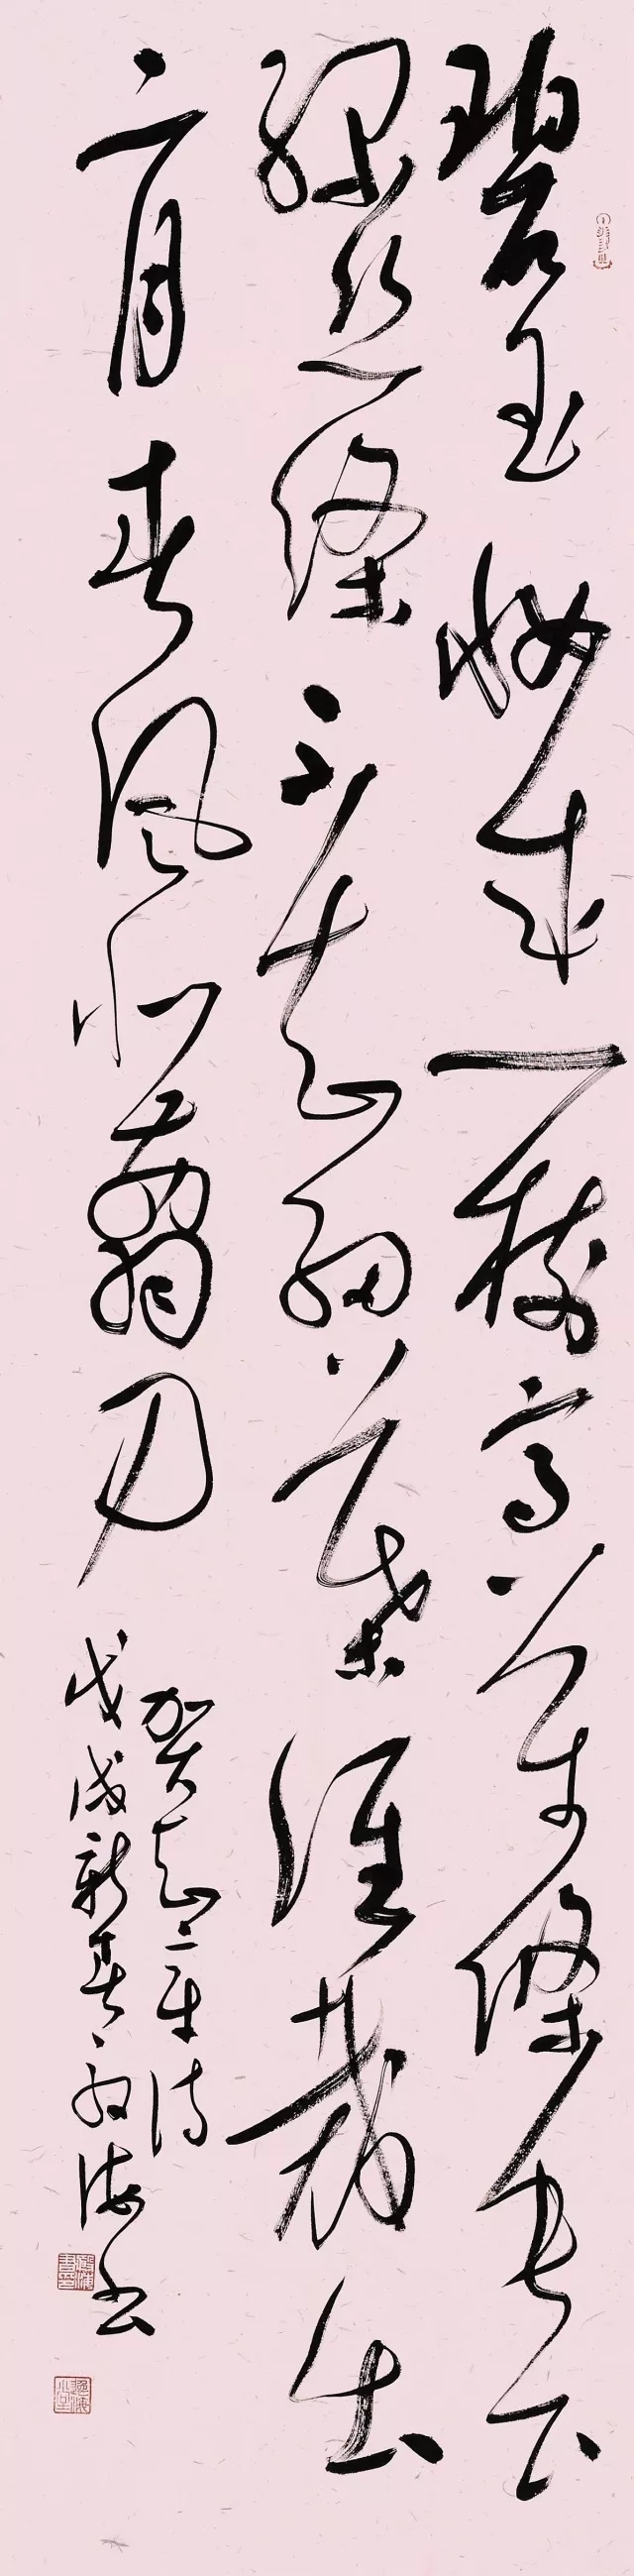 碧玉妝成一樹高萬條垂下
綠絲絛不知細葉誰裁出
二月春風似翦刀
賀知章詩
戊戌新春海書